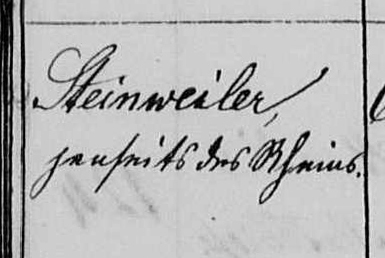 Steinweiler,
jenseits des Rheins.